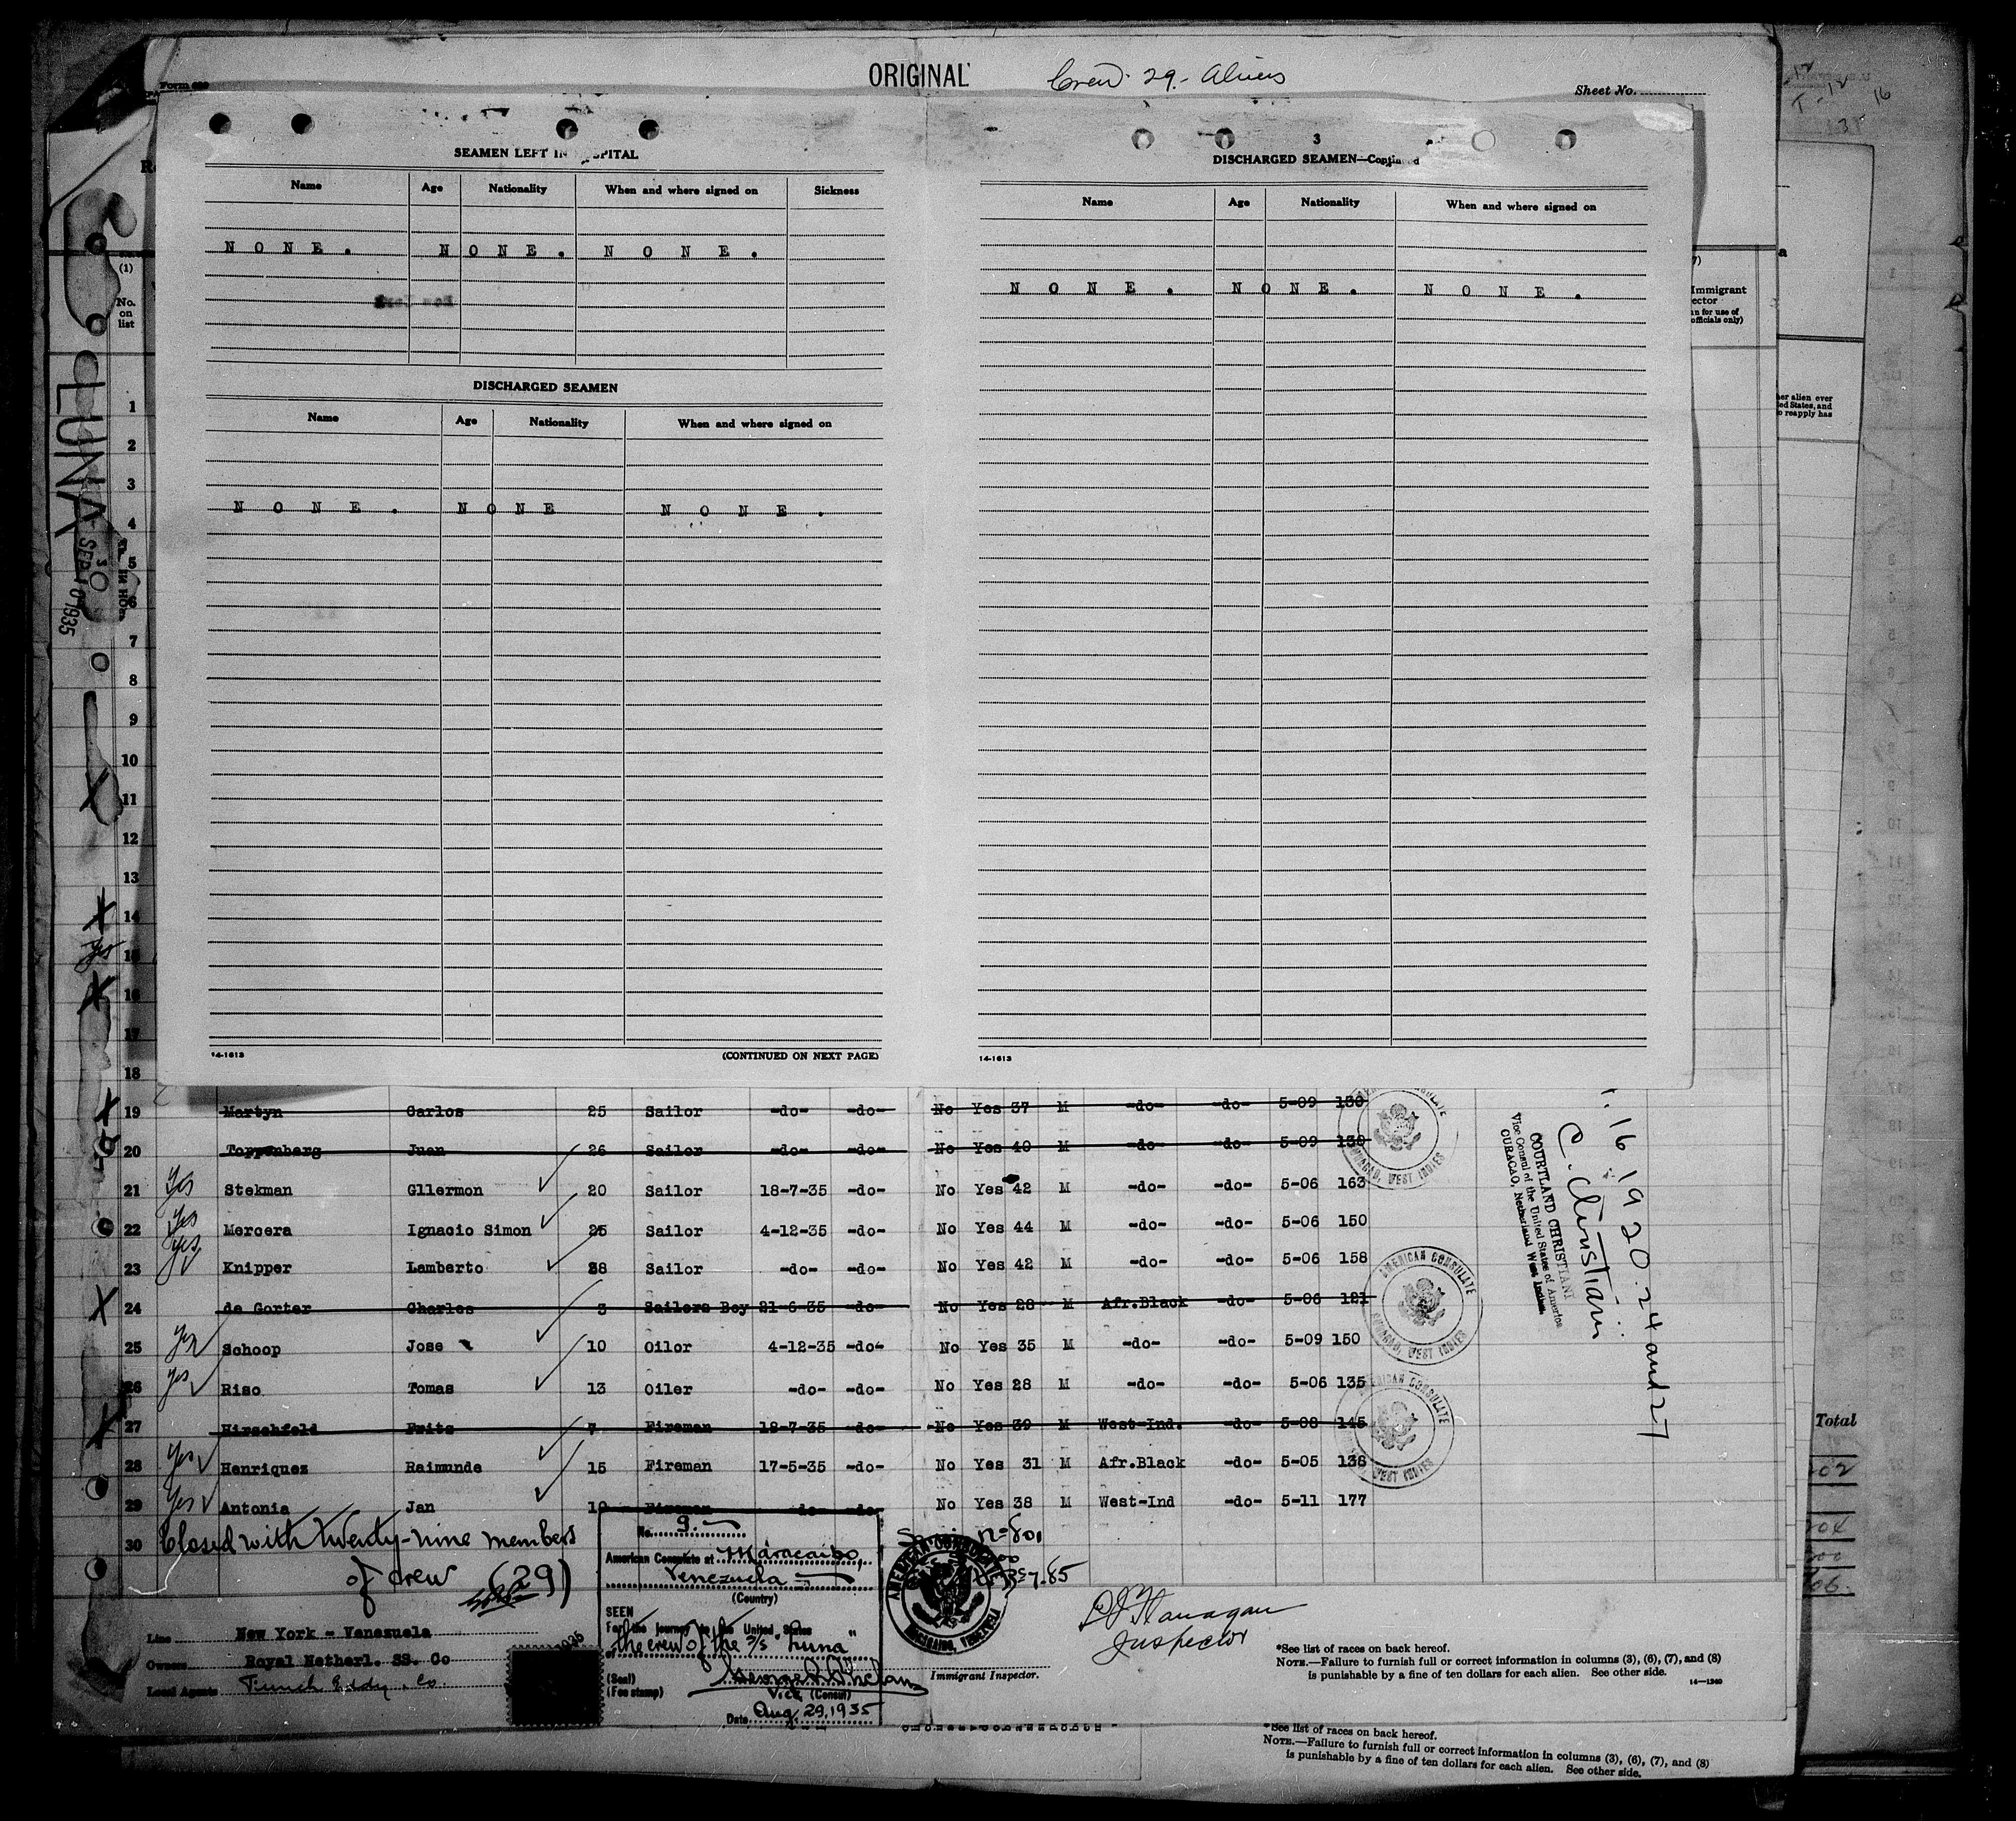 ORIGINAL
Crew 29 - Aliens
Sheet No.
SEAMEN LEFT IN HOSPITAL
Name Age Nationality When and where signed on Sickness
N O N E . N O N E . N O N E .
DISCHARGED SEAMEN
Name Age Nationality When and where signed on
N O N E . N O N E N O N E .
14-1613 (CONTINUED ON NEXT PAGE)
3
DISCHARGED SEAMEN—Continued
Name Age Nationality When and where signed on
N O N E . N O N E . N O N E .
14-1613
(1)
No.
on
list
LUNA
SEP 10 1935
Immigrant
officials only)
1
2
3
4
5
6
7
8
9
10
11
12
13
14
Yes 15
16
17
18
19 Martyn Carlos 25 Sailor -do- -do- No Yes 37 M -do- -do- 5-09 150
20 Toppenberg Juan 26 Sailor -do- -do- No Yes 40 M -do- -do- 5-09 130
21 Yes Stekman Gllermon 20 Sailor 18-7-35 -do- No Yes 42 M -do- -do- 5-06 163
22 Yes Mercera Ignacio Simon 25 Sailor 4-12-35 -do- No Yes 44 M -do- -do- 5-06 150
23 Yes Knipper Lamberto 28 Sailor -do- -do- No Yes 42 M -do- -do- 5-06 158
24 de Gorter Charles 3 Sailors Boy 21-6-35 -do- No Yes 28 M Afr.Black -do- 5-06 121
25 Yes Schoop Jose 10 Oiler 4-12-35 -do- No Yes 35 M -do- -do- 5-09 150
26 Yes Riso Tomas 13 Oiler -do- -do- No Yes 28 M -do- -do- 5-06 135
27 Hirschfeld Frits 7 Fireman 18-7-35 -do- No Yes 39 M West-Ind. -do- 5-08 145
28 Yes Henriquez Raimunde 15 Fireman 17-5-35 -do- No Yes 31 M Afr.Black -do- 5-05 138
29 Yes Antonia Jan 10 Fireman -do- -do- No Yes 38 M West-Ind -do- 5-11 177
30 Closed with twenty-nine members
of crew (29)
16 19 20 24 and 27
C. Christiani
COURTLAND CHRISTIANI
Vice Consul of the United States of America
CURACAO, Netherland West Indies.
AMERICAN CONSULATE
CURACAO, WEST INDIES
AMERICAN CONSULATE
CURACAO, WEST INDIES
AMERICAN CONSULATE
WEST INDIES
No. 9.
American Consulate at Maracaibo,
Venezuela
(Country)
SEEN
For the journey to the United States
of the crew of the S/S "Luna"
(Seal)
(Fee stamp)
Vice (Consul)
Date Aug. 29, 1935
AMERICAN CONSULATE
MARACAIBO, VENEZUELA
Line New York - Venezuela
Owners Royal Netherl. SS. Co
Local Agents Funch Edye Co
Flanagan
Inspector
Immigrant Inspector.
*See list of races on back hereof.
NOTE.—Failure to furnish full or correct information in columns (3), (6), (7), and (8)
is punishable by a fine of ten dollars for each alien. See other side.
14-1240
*See list of races on back hereof.
NOTE.—Failure to furnish full or correct information in columns (3), (6), (7), and (8)
is punishable by a fine of ten dollars for each alien. See other side.
her alien ever
ted States, and
o reapply has
Total